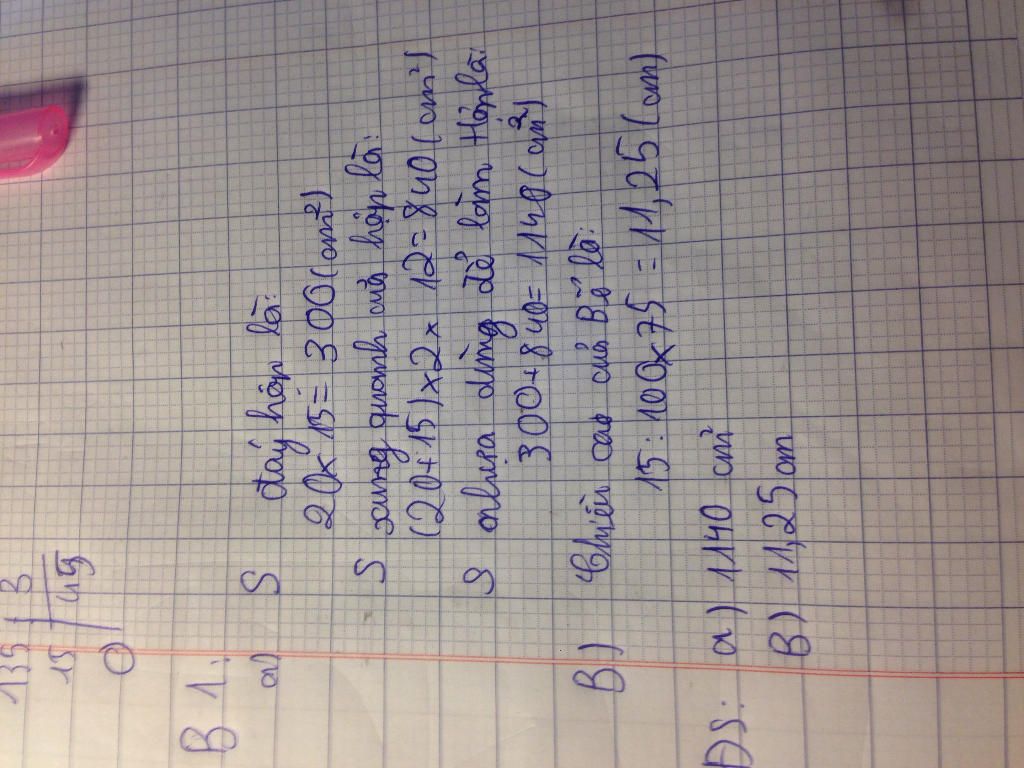 135
15
0
B 1:
a) S đáy hộp là:
20 x 15 = 300 (cm²)
S xung quanh của hộp là:
(20 + 15) x 2 x 12 = 840 (cm²)
S nhựa dùng để làm hộp là:
300 + 840 = 1140 (cm²)
B) Chiều cao của Bể là:
15 : 100 x 75 = 11,25 (cm)
ĐS: a) 1140 cm²
B) 11,25 cm